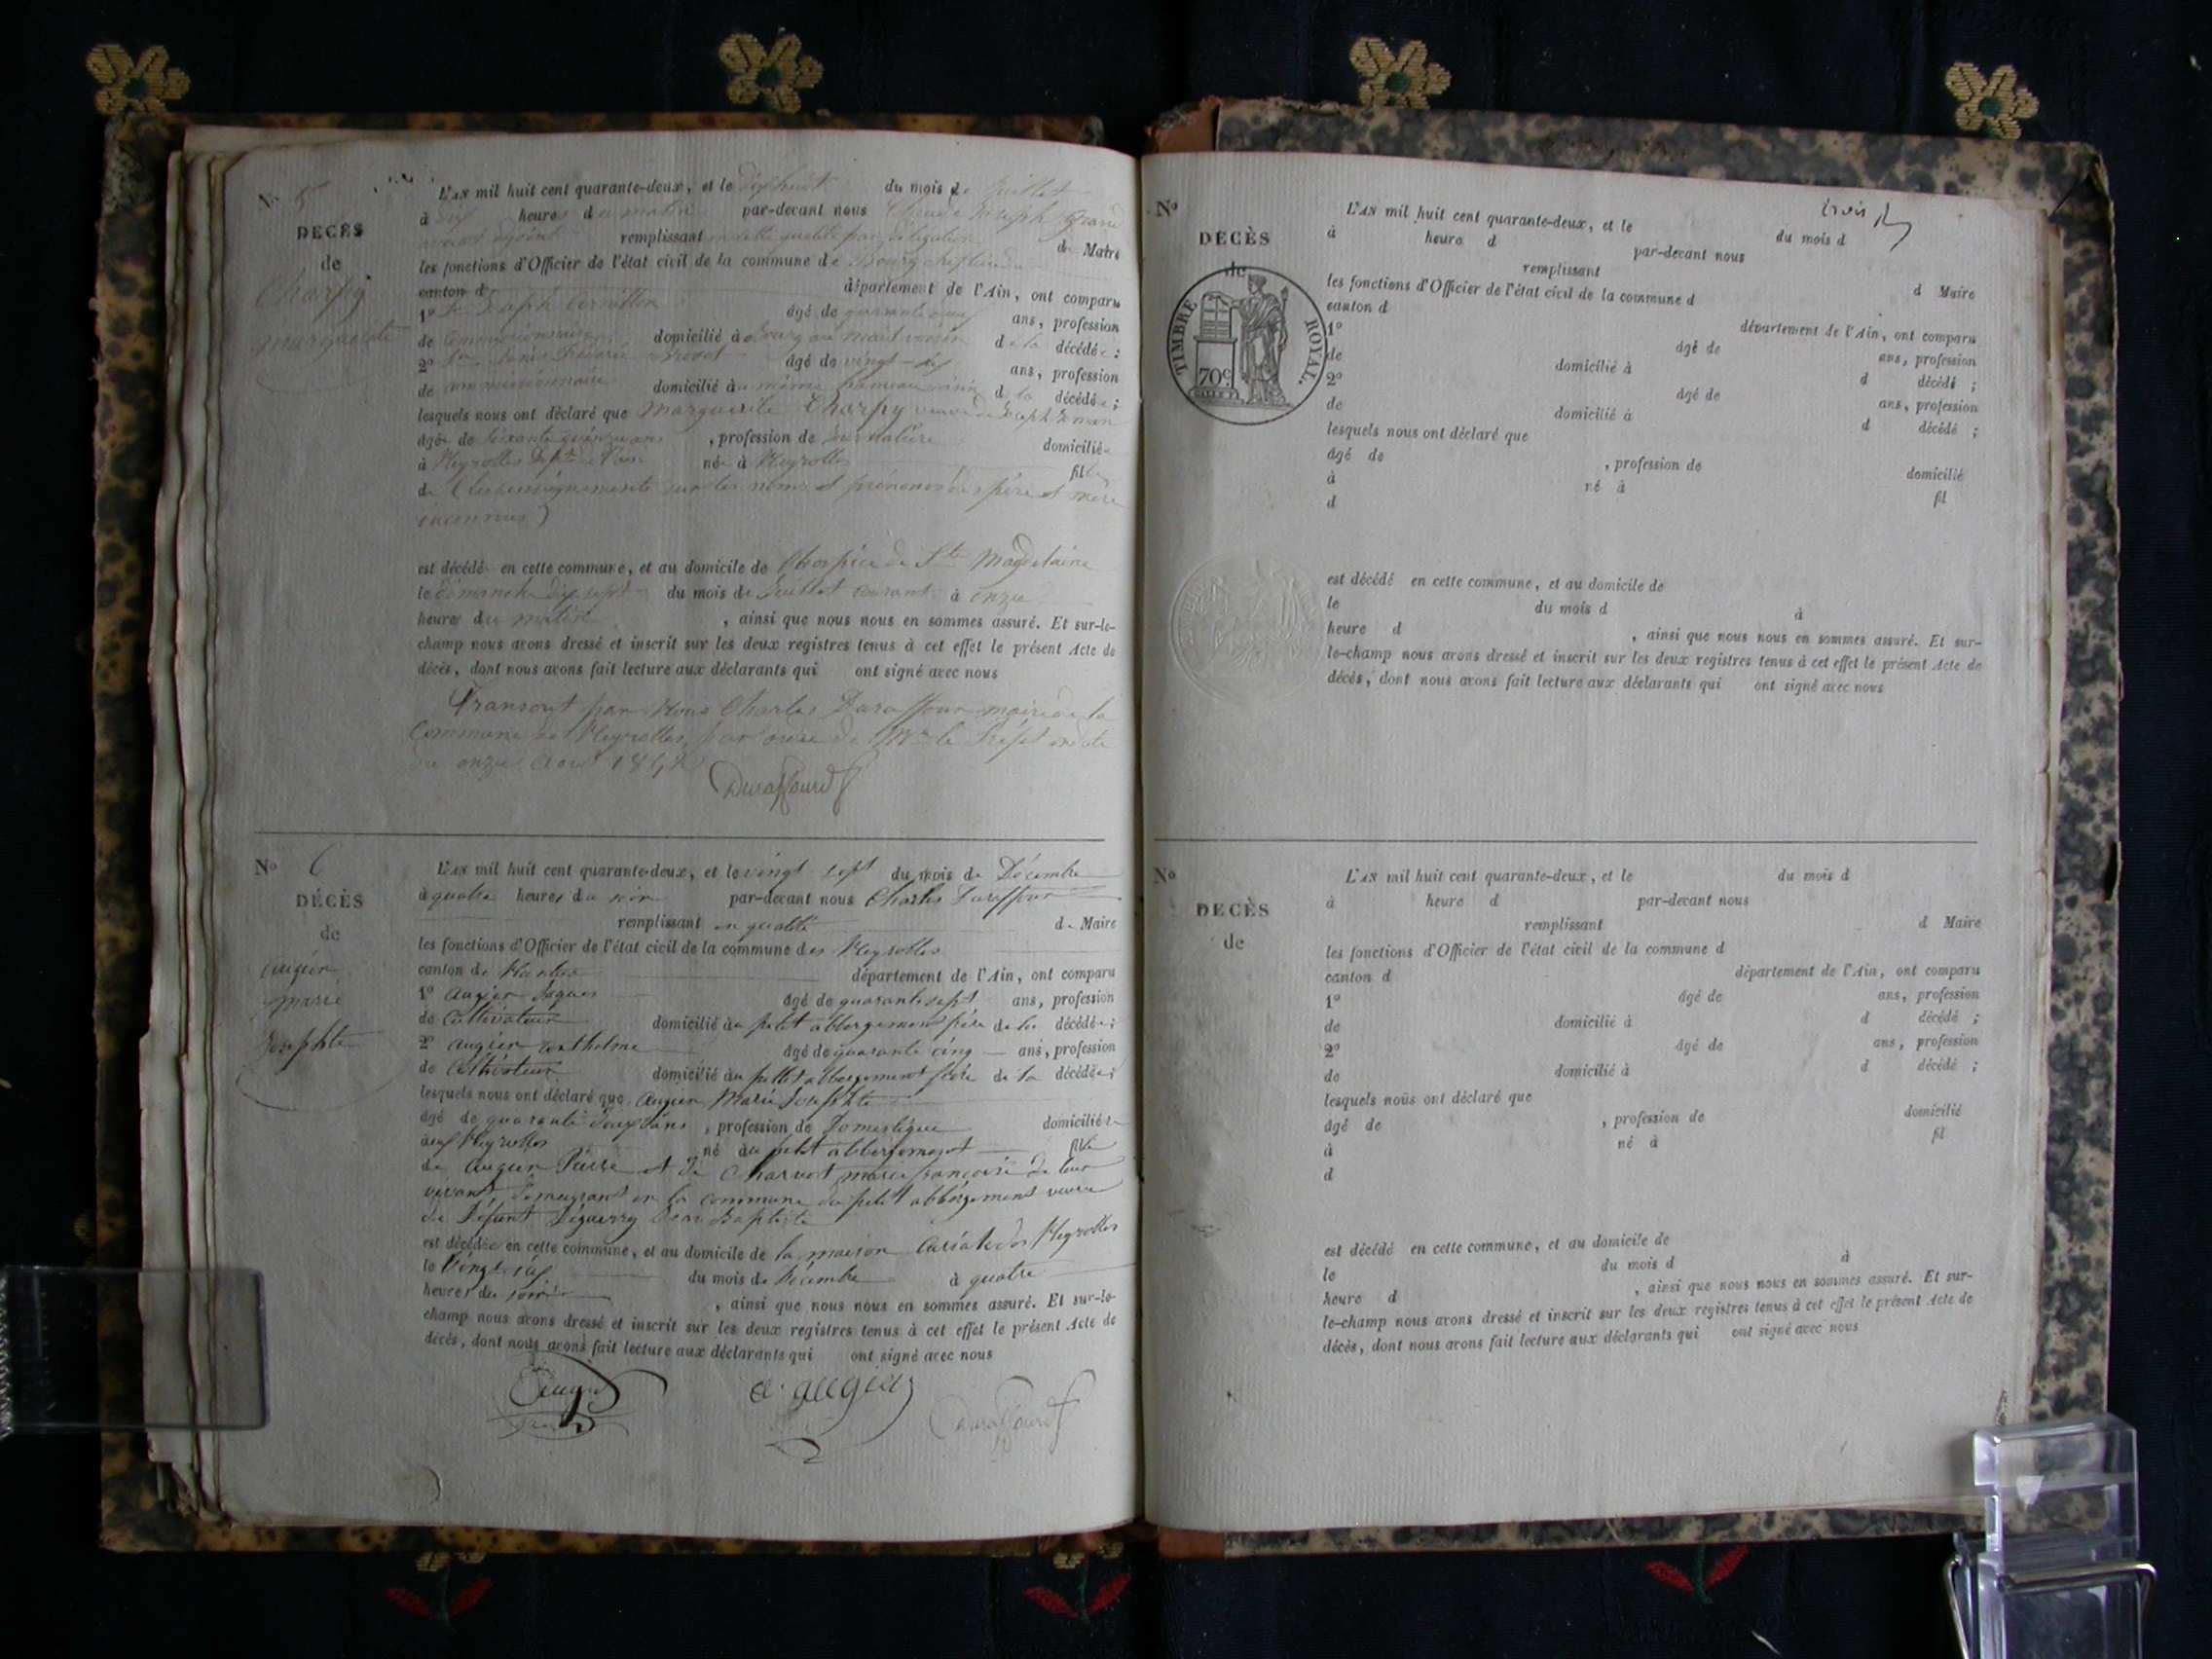 No 5
DÉCÈS
de
Charpy
marguerite
L'AN mil huit cent quarante-deux, et le dix huit du mois de Juillet
à dix heures du matin par-devant nous Claude Joseph Grand
remplissant en cette qualité par délégation de Maire
les fonctions d'Officier de l'état civil de la commune de Bourg
canton d département de l'Ain, ont comparu
1º Sr Joseph âgé de quarante neuf ans, profession
de Commissionnaire domicilié à Bourg voisin de la décédée ;
2º Sr Louis âgé de vingt-six ans, profession
de commissionnaire domicilié au même hameau voisin d la décédée ;
lesquels nous ont déclaré que Marguerite Charpy veuve de Joseph
âgée de soixante ans , profession de journalière domiciliée
à Meyrolles Dept de l'Ain née à Meyrolles fille
de (les renseignements sur les noms et prénoms des père et mère
inconnus)
est décédé en cette commune, et au domicile de l'hospice de Ste Magdelaine
le dimanche dix sept du mois de Juillet courant à onze
heures du matin , ainsi que nous nous en sommes assuré. Et sur-le-
champ nous avons dressé et inscrit sur les deux registres tenus à cet effet le présent Acte de
décès, dont nous avons fait lecture aux déclarants qui ont signé avec nous
Transcrit par Nous Charles Duraffour maire de la
Commune de Meyrolles, par ordre de Mr le Préfet en date
du onze Aout 1842
Duraffourd
No 6
DÉCÈS
de
augier
marie
Josephte
L'AN mil huit cent quarante-deux, et le vingt sept du mois de Décembre
à quatre heures du soir par-devant nous Charles Duraffour
remplissant en qualité de Maire
les fonctions d'Officier de l'état civil de la commune des Meyrolles
canton de Nantua département de l'Ain, ont comparu
1º augier Jaques âgé de quarante sept ans, profession
de Cultivateur domicilié au petit abbergement frère de la décédée ;
2º augier Anthelme âgé de quarante cinq ans, profession
de Cultivateur domicilié au petit abbergement frère de la décédée ;
lesquels nous ont déclaré que augier Marie Josephte
âgé de quarante deux ans , profession de Domestique domiciliée
aux Meyrolles né au petit abbergement fille
de augier Pierre et de Charvet marie françoise de leur
vivant demeurant en la commune du petit abbergement veuve
de Défunt Jean Baptiste
est décédée en cette commune, et au domicile de la maison Curiale des Meyrolles
le Vingt six du mois de Décembre à quatre
heures du soir , ainsi que nous nous en sommes assuré. Et sur-le-
champ nous avons dressé et inscrit sur les deux registres tenus à cet effet le présent Acte de
décès, dont nous avons fait lecture aux déclarants qui ont signé avec nous
Augier
a. augier
Duraffourd
trois
No
DÉCÈS
de
TIMBRE ROYAL.
70c
L'AN mil huit cent quarante-deux, et le du mois d
à heure d par-devant nous
remplissant d Maire
les fonctions d'Officier de l'état civil de la commune d
canton d département de l'Ain, ont comparu
1º âgé de ans, profession
de domicilié à d décédé ;
2º âgé de ans, profession
de domicilié à d décédé ;
lesquels nous ont déclaré que
âgé de , profession de domicilié
à né à fil
d
est décédé en cette commune, et au domicile de
le du mois d à
heure d , ainsi que nous nous en sommes assuré. Et sur-
le-champ nous avons dressé et inscrit sur les deux registres tenus à cet effet le présent Acte de
décès, dont nous avons fait lecture aux déclarants qui ont signé avec nous
No
DÉCÈS
de
L'AN mil huit cent quarante-deux, et le du mois d
à heure d par-devant nous
remplissant d Maire
les fonctions d'Officier de l'état civil de la commune d
canton d département de l'Ain, ont comparu
1º âgé de ans, profession
de domicilié à d décédé ;
2º âgé de ans, profession
de domicilié à d décédé ;
lesquels nous ont déclaré que
âgé de , profession de domicilié
à né à fil
d
est décédé en cette commune, et au domicile de
le du mois d à
heure d , ainsi que nous nous en sommes assuré. Et sur-
le-champ nous avons dressé et inscrit sur les deux registres tenus à cet effet le présent Acte de
décès, dont nous avons fait lecture aux déclarants qui ont signé avec nous